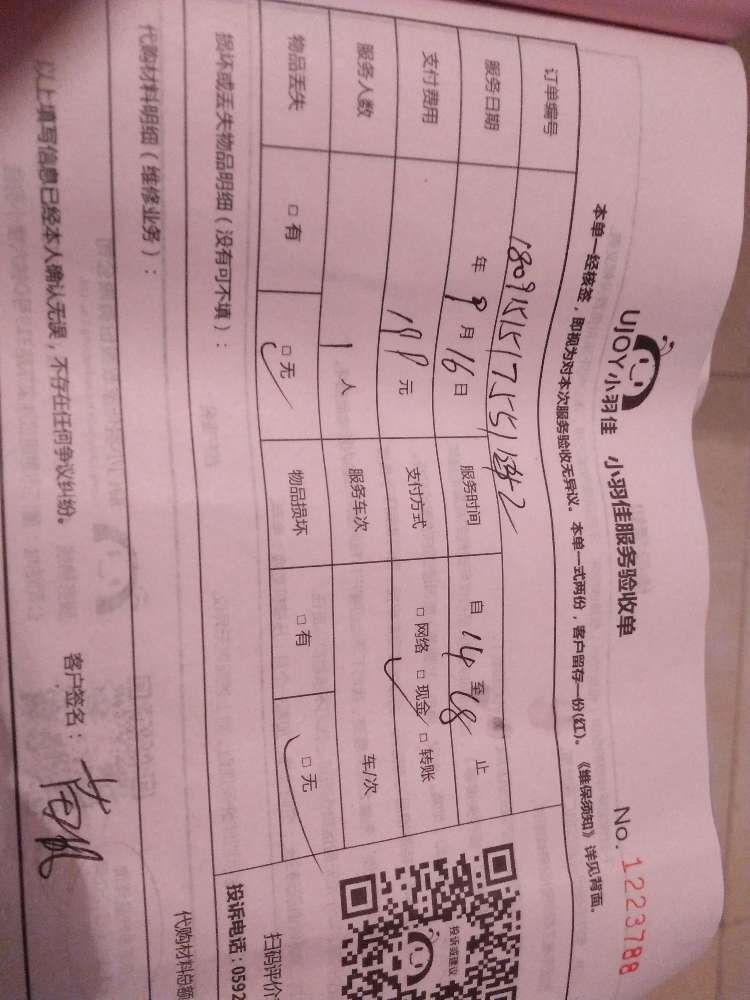 UJOY小羽佳 小羽佳服务验收单 No.1223788
本单一经核签，即视为对本次服务验收无异议。本单一式两份，客户留存一份(红)。《维保须知》详见背面。
订单编号
服务日期 年 9 月 16 日 服务时间 自 14 至 18 止
支付费用 元 支付方式 □ 网络 □ 现金 □ 转账
服务人数 1 人 服务车次 车/次
物品丢失 □ 有 □ 无 物品损坏 □ 有 □ 无
损坏或丢失物品明细（没有可不填）：
代购材料明细（维修业务）： 代购材料总额
以上填写信息已经本人确认无误，不存在任何争议纠纷。 客户签名：
投诉或建议
扫码评价
投诉电话：0592